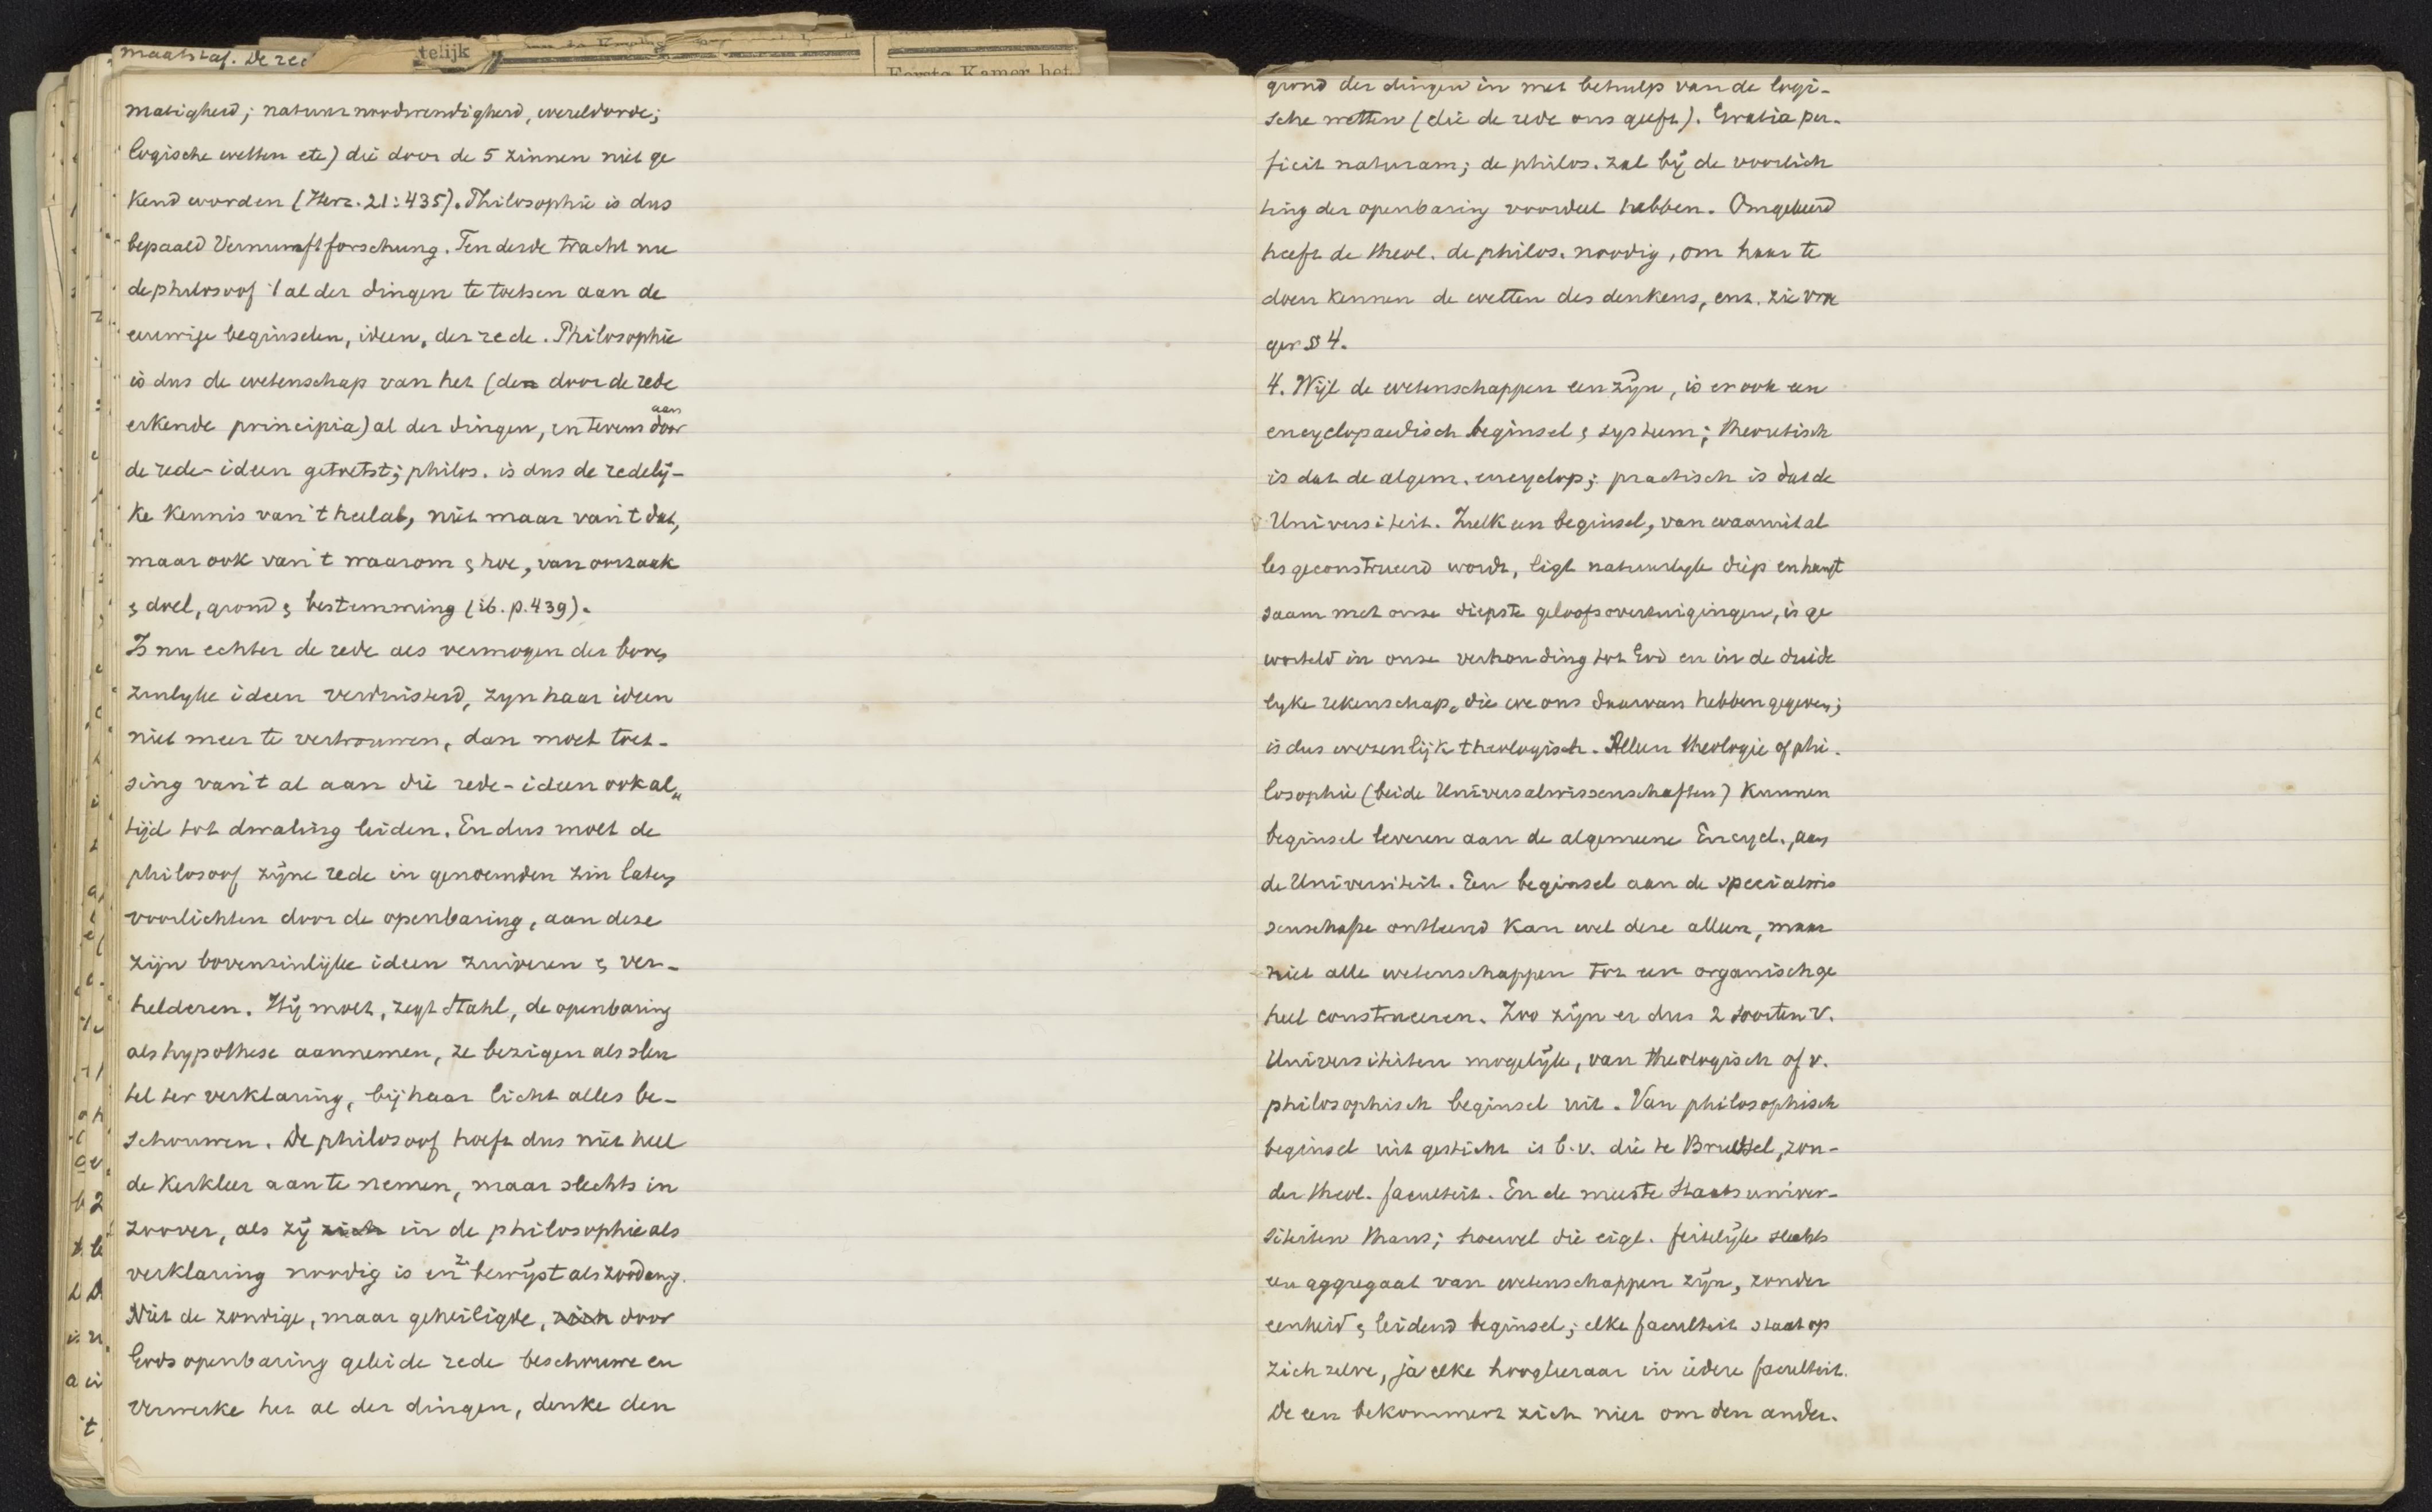 maatstaf. De red
telijk
Eerste Kamer het
matigheid; natuurnoodwendigheid, wereldorde;
logische wetten etc) die door de 5 zinnen niet ge
kend worden (Herz. 21:435). Philosophie is dus
bepaald Vernunftforschung. Ten derde tracht nu
de philosoof 't al der dingen te toetsen aan de
eeuwige beginselen, ideen, der rede. Philosophie
is dus de wetenschap van het (den door de rede
erkende principia) al der dingen, en tevens door aan
de rede-ideen getoetst; philos. is dus de redelij-
ke kennis van 't heelal, niet maar van 't dat,
maar ook van 't waarom & hoe, van oorzaak
& doel, grond & bestemming (ib. p. 439).
Is nu echter de rede als vermogen der boven
zinlyke ideen verduisterd, zyn haar ideen
niet meer te vertrouwen, dan moet toet-
sing van 't al aan die rede-ideen ook al„
tijd tot dwaling leiden. En dus moet de
philosoof zijne rede in genoemden zin laten
voorlichten door de openbaring, aan deze
zijn bovenzinlijke ideen zuiveren & ver-
helderen. Hij moet, zegt Stahl, de openbaring
als hypothese aannemen, ze bezigen als sleu
tel ter verklaring, bij haar licht alles be-
schouwen. De philosoof hoeft dus niet heel
de kerkleer aan te nemen, maar slechts in
zoover, als zij zich in de philosophie als
verklaring noodig is en z. bewijst als zoodanig.
Niet de zondige, maar geheiligde, zich door
Gods openbaring geleide rede beschouwe en
verwerke het al der dingen, denke den
grond der dingen in met behulp van de logi-
sche wetten (die de rede ons geeft). Gratia per-
ficit naturam; de philos. zal bij de voorlich
ting der openbaring voordeel hebben. Omgekeerd
heeft de theol. de philos. noodig, om haar te
doen kennen de wetten des denkens, enz. zie vroe
ger § 4.
4. Wijl de wetenschappen een zijn, is er ook een
encyclopaedisch beginsel & systeem; theoretisch
is dat de algem. encyclop; practisch is dat de
Universiteit. Zulk een beginsel, van waaruit al
les geconstrueerd wordt, ligt natuurlyk diep en hangt
saam met onze diepste geloofsovertuigingen, is ge
worteld in onze verhouding tot God en in de duide
lyke rekenschap, die we ons daarvan hebben gegeven;
is dus wezenlijk theologisch. Alleen theologie of phi-
losophie (beide Universalwissenschaften) kunnen
beginsel leveren aan de algemeene Encycl., aan
de Universiteit. Een beginsel aan de specialwis
senschaft ontleend kan wel deze alleen, maar
niet alle wetenschappen tot een organisch ge
heel construeeren. Zoo zijn er dus 2 soorten v.
Universiteiten mogelijk, van theologisch of v.
philosophisch beginsel uit. Van philosophisch
beginsel uit gesticht is b.v. die te Brussel, zon-
der theol. faculteit. En de meeste Staatsuniver-
siteiten thans; hoewel die eigl. feitelijk slechts
een aggregaat van wetenschappen zijn, zonder
eenheid & leidend beginsel; elke faculteit staat op
zich zelve, ja elke hoogleeraar in iedere faculteit.
De een bekommert zich niet om den ander.